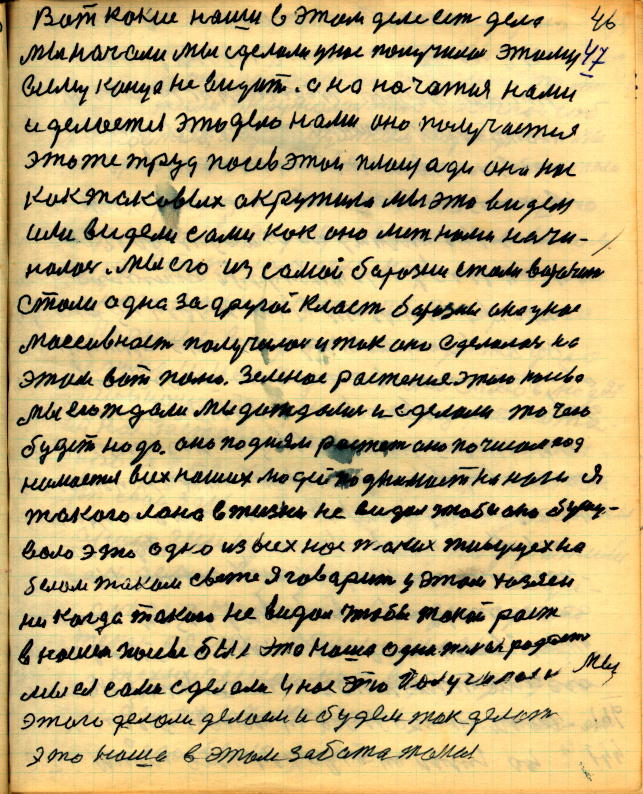 Вот какие наши в этом деле ест дела 46
мы начали мы сделали у нас получился этому 47
виду конца не видат. она начатия нами
и делается это дело нами оно получается
это же труд посев этой площади она нас
как таковых окружила мы это видем
или видели сами как оно мет нами начи-
налос. Мы его из самой барозни стали
стали одна за другой класт барозни она у нас
массивност получилос и так оно сделалос на
этом вот поно. Зеленое растение этого посева
мы его ждали мы дождалися и сделали то чего
будет надо. оно по дням растет оно по числам под
нимается всех наших людей поднимает на ноги Я
такого лана в жизни не видал чтобы оно бушу-
вало это одно из всех нас таких живущех на
белом таком свете Я говарит у этом хазяен
ни когда такого не видал чтобы такой рост
в нашем посеве был это наша одна такая радост
мы ея сами сделали у нас это получилося Мы
этого делали делаем и будем так делат
это наша в этом забота